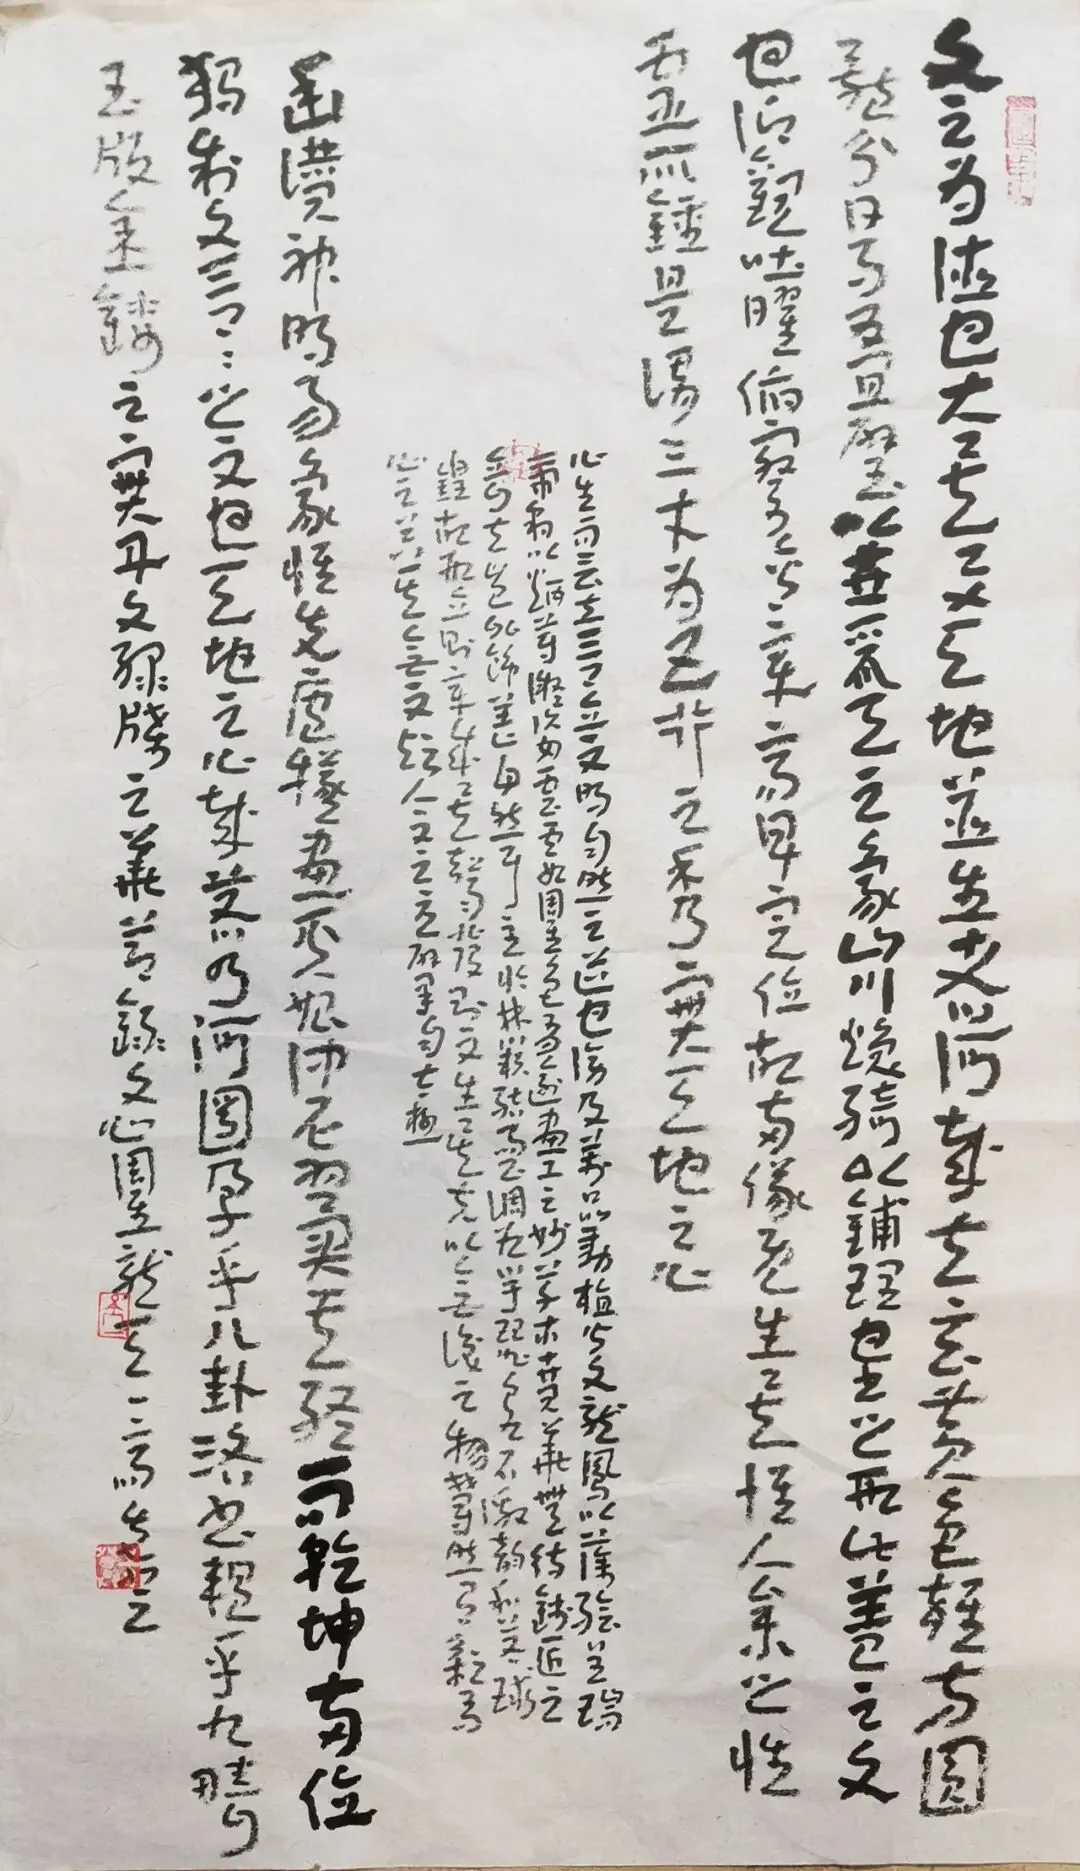 文之为德也大矣与天地並生者何哉夫玄黄色雜方圓
體分日月叠璧以垂麗天之象山川焕綺以鋪理地之形此蓋道之文
也仰觀吐曜俯察含章高卑定位故兩儀既生矣惟人參之性
靈所鍾是謂三才为五行之秀乃實天地之心
心生而言立言立文明自然之道也傍及萬品動植皆文龍鳳以藻繪呈瑞
虎豹以炳蔚凝姿雲霞雕色有逾畫工之妙草木賁華無待錦匠之
奇夫豈外飾蓋自然耳至於林籟結響調如竽瑟泉石激韻和若球
鍠故形立則章成矣聲發則文生矣夫以無識之物鬱然有彩有
心之器其無文歟人文之元肇自太極
幽讚神明易象惟先庖犧畫其始仲尼翼其終而乾坤兩位
獨制文言言之文也天地之心哉若乃河圖孕乎八卦洛書韞乎九疇
玉版金鏤之實丹文綠牒之華節錄文心雕龍